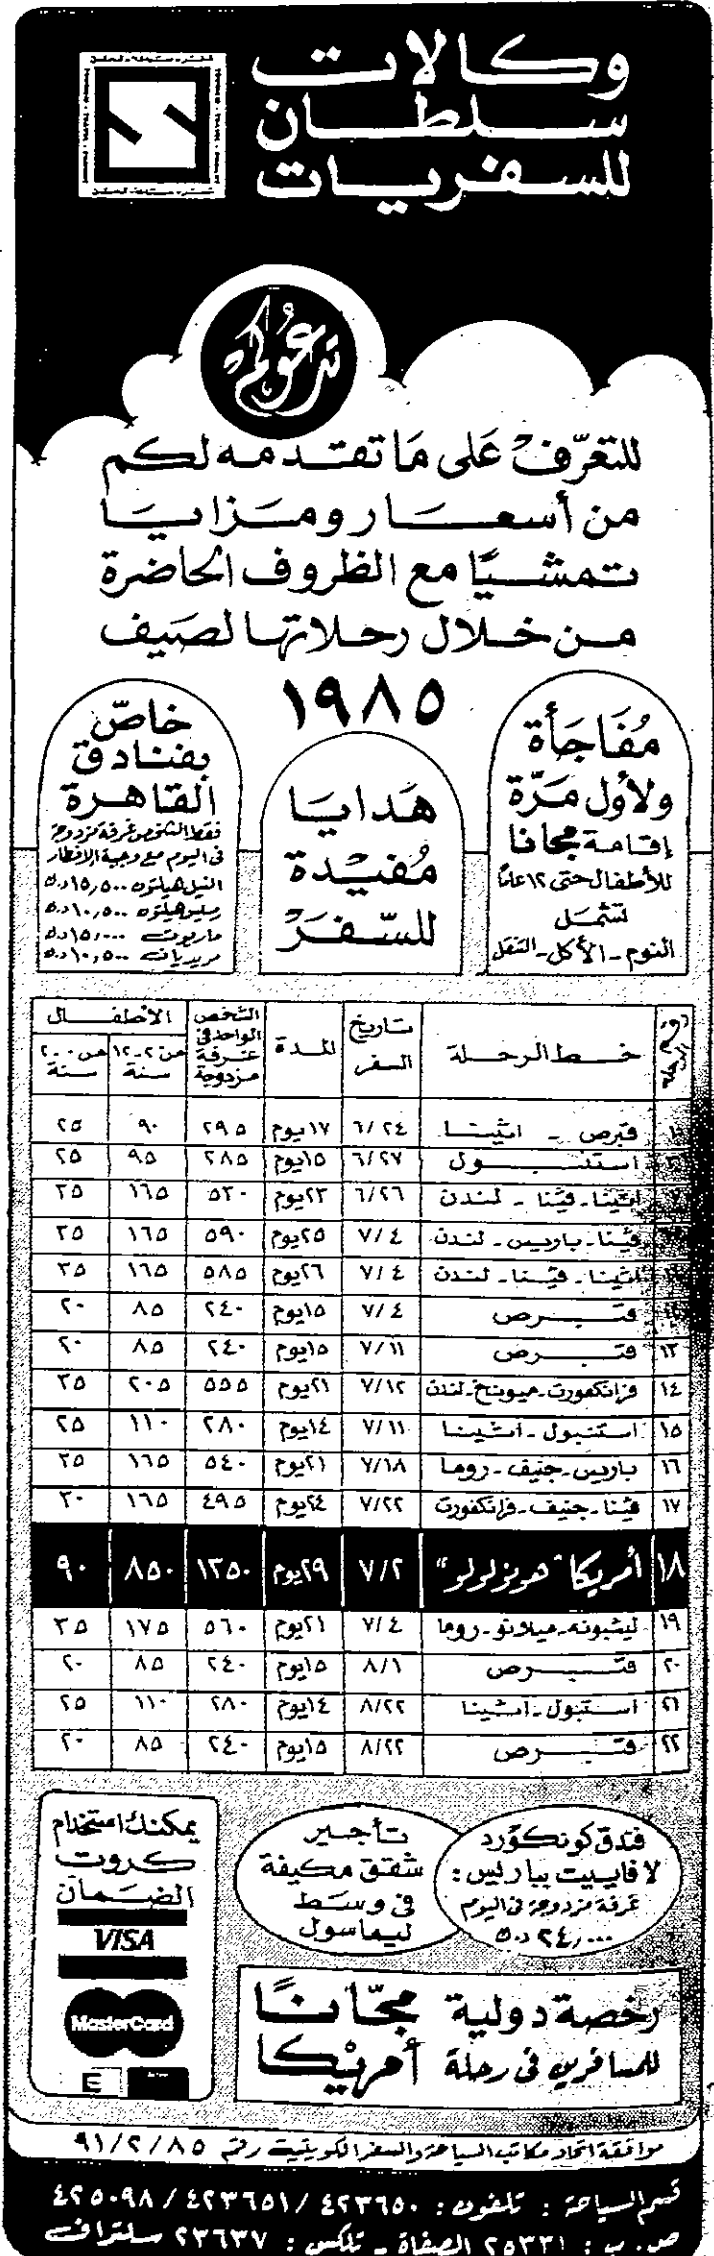 وكالات
سلطان
للسفريات
تدعوكم
للتعرّف على ما تقدمه لكم
من أسعار ومزايا
تمشيًا مع الظروف الحاضرة
من خلال رحلاتها لصيف
١٩٨٥
مفاجأة
ولأول مرّة
إقامة مجانا
للأطفال حتى ١٢ عامًا
تشمل
النوم - الأكل - التنقل
هدايا
مفيدة
للسّفر
خاصّ
بفنادق
القاهرة
فقط الشخص غرفة مزدوجة
في اليوم مع وجبة الافطار
النيل هيلتون ١٥,٥٠٠ د.ك
رمسيس هيلتون ١٠,٥٠٠ د.ك
ماريوت ١٥,٠٠٠ د.ك
مريديان ١٠,٥٠٠ د.ك
رقم الرحلة | خط الرحلة | تاريخ السفر | المدة | الشخص الواحد في غرفة مزدوجة | الأطفال من ٢-١٢ سنة | من ٠-٢ سنة
قبرص - اثينا ٦/٢٤ ١٧يوم ٢٩٥ ٩٠ ٢٥
استنبول ٦/٢٧ ١٥يوم ٢٨٥ ٩٥ ٢٥
اثينا - فينا - لندن ٦/٢٦ ٢٣يوم ٥٣٠ ١٦٥ ٣٥
فينا - باريس - لندن ٧/٤ ٢٥يوم ٥٩٠ ١٦٥ ٣٥
اثينا - فينا - لندن ٧/٤ ٢٦يوم ٥٨٥ ١٦٥ ٣٥
قبرص ٧/٤ ١٥يوم ٢٤٠ ٨٥ ٢٠
١٣ قبرص ٧/١١ ١٥يوم ٢٤٠ ٨٥ ٢٠
١٤ فرانكفورت - ميونخ - لندن ٧/١٢ ٢١يوم ٥٥٥ ٢٠٥ ٣٥
١٥ استنبول - اثينا ٧/١١ ١٤يوم ٢٨٠ ١١٠ ٢٥
١٦ باريس - جنيف - روما ٧/١٨ ٢١يوم ٥٤٠ ١٦٥ ٣٥
١٧ فينا - جنيف - فرانكفورت ٧/٢٢ ٢٤يوم ٤٩٥ ١٦٥ ٣٠
١٨ أمريكا "هونولولو" ٧/٢ ٢٩يوم ١٣٥٠ ٨٥٠ ٩٠
١٩ ليشبونه - ميلانو - روما ٧/٤ ٢١يوم ٥٦٠ ١٧٥ ٣٥
٢٠ قبرص ٨/١ ١٥يوم ٢٤٠ ٨٥ ٢٠
٢١ استنبول - اثينا ٨/٢٢ ١٤يوم ٢٨٠ ١١٠ ٢٥
٢٢ قبرص ٨/٢٢ ١٥يوم ٢٤٠ ٨٥ ٢٠
فندق كونكورد
لافاييت بباريس :
غرفة مزدوجة في اليوم
٢٤,٠٠٠ د.ك
تأجير
شقق مكيفة
في وسط
ليماسول
يمكنك استخدام
كروت
الضمان
VISA
MasterCard
E
رخصة دولية مجّانًا
للمسافرين في رحلة أمريكا
موافقة اتحاد مكاتب السياحة والسفر الكويتية رقم ٩١/٢/٨٥
قسم السياحة : تلفون : ٤٢٣٦٥٠ / ٤٢٣٦٥١ / ٤٢٥٠٩٨
ص . ب : ٢٥٣٣١ الصفاة - تلكس : ٢٣٦٣٧ سلتراف